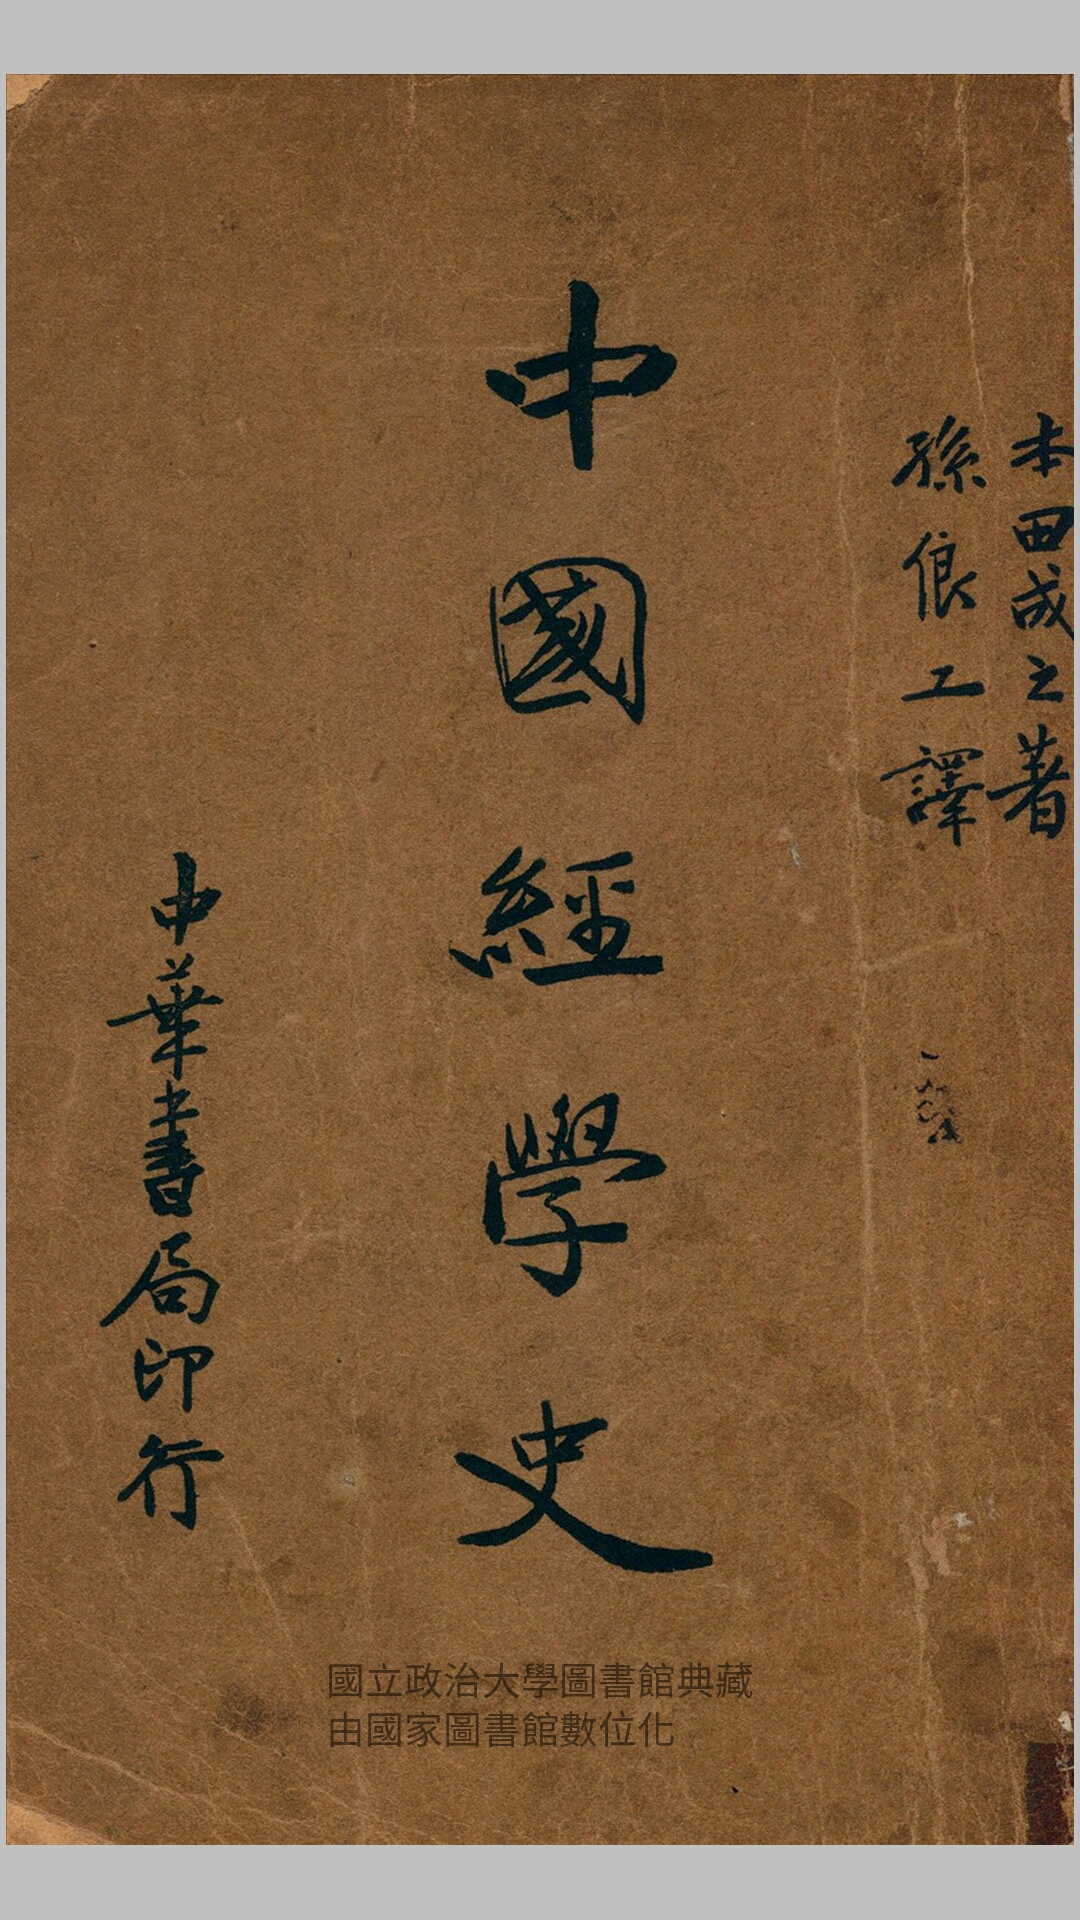 本田成之著
孫俍工譯
中國經學史
中華書局印行
國立政治大學圖書館典藏
由國家圖書館數位化